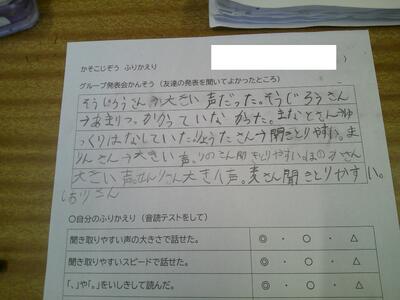 かそこじぞう ふりかえり
)
グループ発表会かんそう(友達の発表を聞いてよかったところ)
そうじろうさん が大きい声だった。そうじろうさん
→あまりつっかかっていなかった。まなとさん→ゆ
っくりはなしていた。りょうたさん→聞きとりやすい。ま
りんさん→大きい声。りのさん聞きとりやすい。ほのかさん
大きい声。せんりさん大きい声。麦さん聞きとりやすい。
しおりさん
〇自分のふりかえり(音読テストをして)
聞き取りやすい声の大きさで話せた。 ◎ ・ ○ ・ △
聞き取りやすいスピードで話せた。 ◎ ・ ○ ・ △
「、」や「。」をいしきして読んだ。 ◎ ・ ○ ・ △